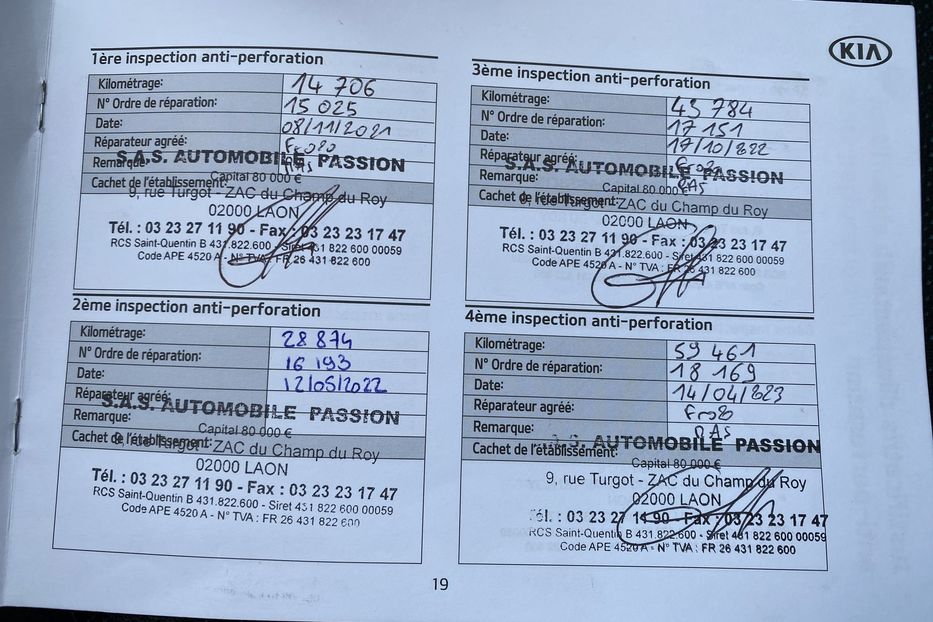 KIA
1ère inspection anti-perforation
Kilométrage: 14 706
N° Ordre de réparation: 15 025
Date: 08/11/2021
Réparateur agréé: Fr080
Remarque: RAS
Cachet de l'établissement:
S.A.S. AUTOMOBILE PASSION
Capital 80 000 €
9, rue Turgot - ZAC du Champ du Roy
02000 LAON
Tél. : 03 23 27 11 90 - Fax : 03 23 23 17 47
RCS Saint-Quentin B 431.822.600 - Siret 431 822 600 00059
Code APE 4520 A - N° TVA : FR 26 431 822 600
2ème inspection anti-perforation
Kilométrage: 28 874
N° Ordre de réparation: 16 193
Date: 12/05/2022
Réparateur agréé:
Remarque:
Cachet de l'établissement:
S.A.S. AUTOMOBILE PASSION
Capital 80 000 €
9, rue Turgot - ZAC du Champ du Roy
02000 LAON
Tél. : 03 23 27 11 90 - Fax : 03 23 23 17 47
RCS Saint-Quentin B 431.822.600 - Siret 431 822 600 00059
Code APE 4520 A - N° TVA : FR 26 431 822 600
3ème inspection anti-perforation
Kilométrage: 43 784
N° Ordre de réparation: 17 151
Date: 17/10/2022
Réparateur agréé: Fr080
Remarque: RAS
Cachet de l'établissement:
S.A.S. AUTOMOBILE PASSION
Capital 80 000 €
9, rue Turgot - ZAC du Champ du Roy
02000 LAON
Tél. : 03 23 27 11 90 - Fax : 03 23 23 17 47
RCS Saint-Quentin B 431.822.600 - Siret 431 822 600 00059
Code APE 4520 A - N° TVA : FR 26 431 822 600
4ème inspection anti-perforation
Kilométrage: 59 461
N° Ordre de réparation: 18 169
Date: 14/04/2023
Réparateur agréé: Fr080
Remarque: RAS
Cachet de l'établissement:
S.A.S. AUTOMOBILE PASSION
Capital 80 000 €
9, rue Turgot - ZAC du Champ du Roy
02000 LAON
Tél. : 03 23 27 11 90 - Fax : 03 23 23 17 47
RCS Saint-Quentin B 431.822.600 - Siret 431 822 600 00059
Code APE 4520 A - N° TVA : FR 26 431 822 600
19